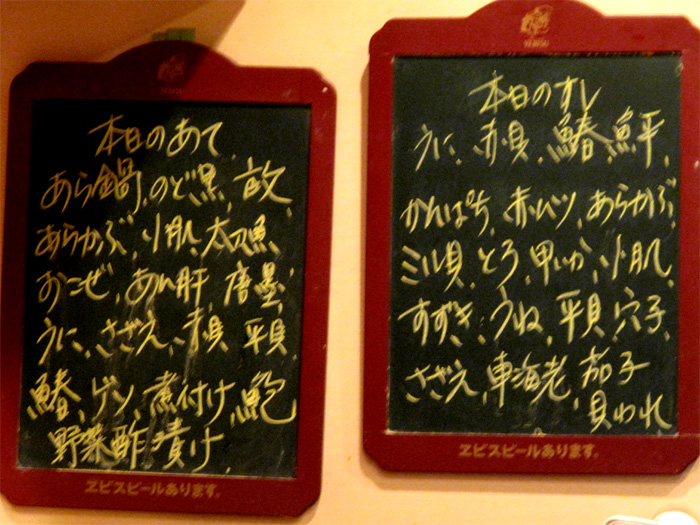 本日のあて
あら鍋、のど黒、
あらかぶ、小肌、太刀魚
おこぜ、あん肝、唐墨、
うに、さざえ、赤貝、平貝、
鰆、ゲソ、煮付け、鮑
野菜酢漬け、
ヱビスビールあります。
YEBISU
本日のすし
うに、赤貝、鰆、鮃、
かんぱち、赤ムツ、あらかぶ、
ミル貝、とろ、甲いか、小肌、
すずき、うね、平貝、穴子、
さざえ、車海老、茄子
貝われ
ヱビスビールあります。